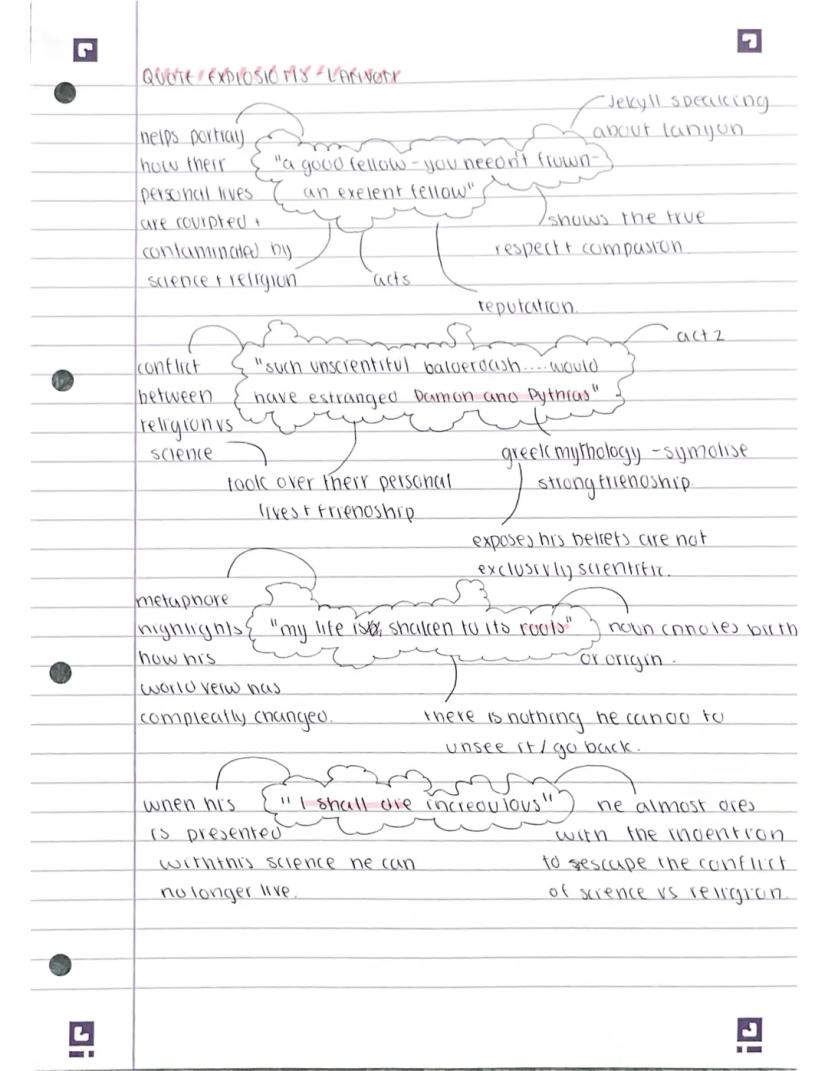 QUOTE EXPLOSIONS - LANYON
Jekyll speaking
about lanyon
helps portray
how their
personal lives
are courpted +
contaminated by
science + religion
"a good fellow - you needn't frown-
an exelent fellow"
shows the true
respect + compasion
acts
reputation.
act 2
conflict
between
religion vs
science
"such unscientiful balderdash....would
have estranged Damon and Pythias"
took over their personal
lives + friendship
greek mythology - symolise
strong friendship.
exposes his beliefs are not
exclusivly scientific.
metaphore
highlights
how his
world veiw has
compleatly changed.
"my life is shaken to its roots"
noun cnnotes birth
or origin.
there is nothing he can do to
unsee it / go back.
when his
is presented
with this science he can
no longer live.
"I shall die incredulous"
he almost dies
with the indention
to escape the conflict
of science vs religion.